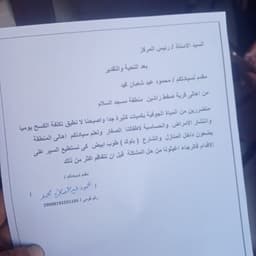 السيد الاستاذ / رئيس المركز
بعد التحية والتقدير
مقدم لسيادتكم / محمود عيد شعبان عيد
من اهالى قرية ضفط راشين منطقة مسجد السلام
متضررين من المياة الجوفية بكميات كثيرة جدا واصبحنا لا نطيق تكلفة الكسح يوميا
وانتشار الامراض والحساسية لاطفالنا الصغار وتعلم سيادتكم اهالى المنطقة
يضعون داخل المنازل والشارع ( بلوك ) طوب ابيض كى نستطيع السير على
الاقدام فالرجاء اغيثونا من هذ المشكلة قبل ان تتفاقم اكثر من ذلك
مقدم لسيادتكم /
رقم قومى /